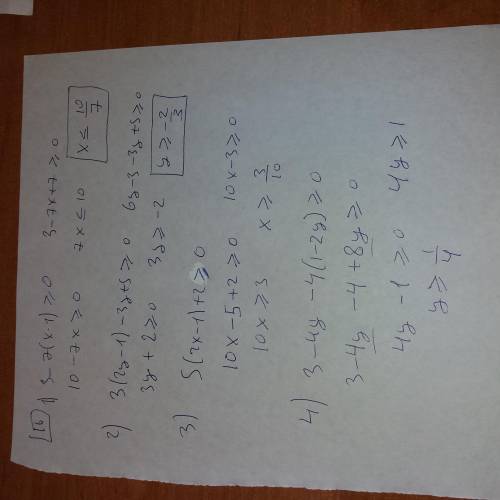 16
1) 3-7(x-1)≥0 3-7x+7≥0
10-7x≥0 7x≤10 x≤10/7
2) 3(2y-1)-3y+5≥0 6y-3-3y+5≥0
3y+2≥0 3y≥-2 y≥-2/3
3) 5(2x-1)+2≥0
10x-5+2≥0 10x-3≥0
10x≥3 x≥3/10
4) 3-4y-4(1-2y)≥0
3-4y-4+8y≥0
4y-1≥0 4y≥1
y≥1/4